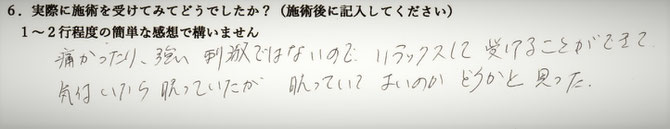 6．実際に施術を受けてみてどうでしたか？（施術後に記入してください）
1～2行程度の簡単な感想で構いません
痛かったり、強い刺激ではないので、リラックスして受けることができて
気付いたら眠っていたが 眠っていて よいのか どうかと思った.